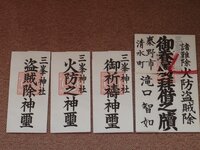 諸難除火防盗賊除
御眷属拝借之牘
秦野市
清水町
滝口智如
三峯神社
御祈祷神璽
三峯神社
火防之神璽
三峯神社
盗賊除神璽